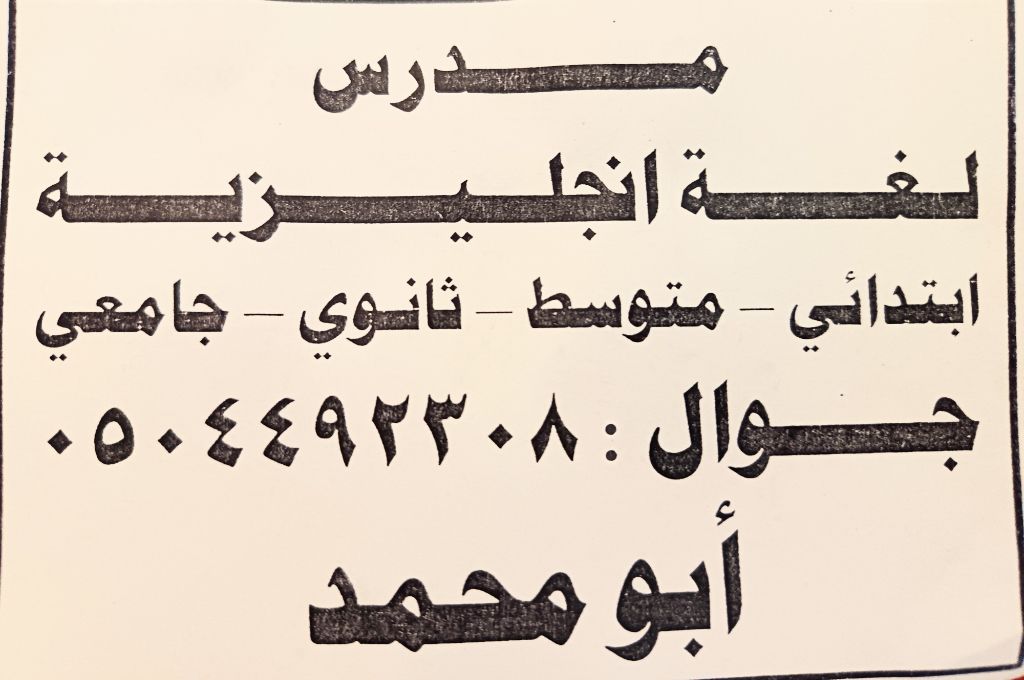 مدرس
لغة انجليزية
ابتدائي - متوسط - ثانوي - جامعي
جوال : ٠٥٠٤٤٩٢٣٠٨
أبو محمد